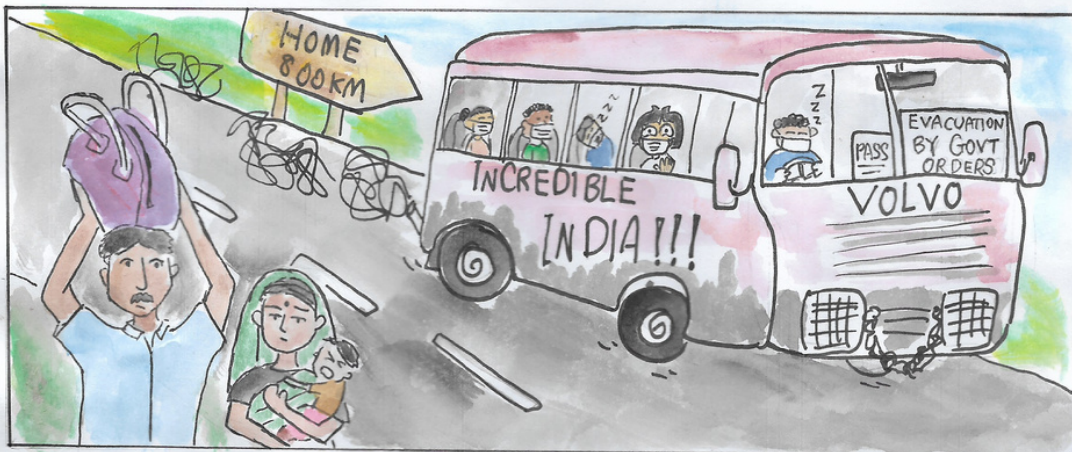 HOME
800KM
INCREDIBLE
INDIA!!!
Z
Z
Z
Z
Z
Z
PASS
EVACUATION
BY GOVT
ORDERS
VOLVO